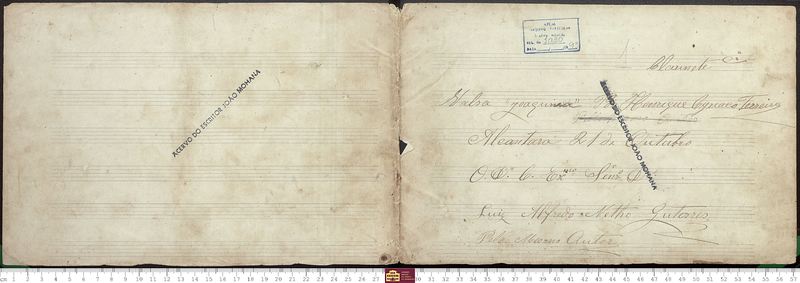 ACERVO DO ESCRITOR JOÃO MOHANA
1080
Clarinete
Valsa "Joaquina" Henrique Cyriaco Ferreira
ACERVO DO ESCRITOR JOÃO MOHANA
Alcantara 21 de Outubro
O. D. C. Exmo Snr. D
Luiz Alfredo Netto Guterres
Pelo Mesmo Autor
cm 1 2 3 4 5 6 7 8 9 10 11 12 13 14 15 16 17 18 19 20 21 22 23 24 25 26 27 30 31 32 33 34 35 36 37 38 39 40 41 42 43 44 45 46 47 48 49 50 51 52 53 54 55 56 57